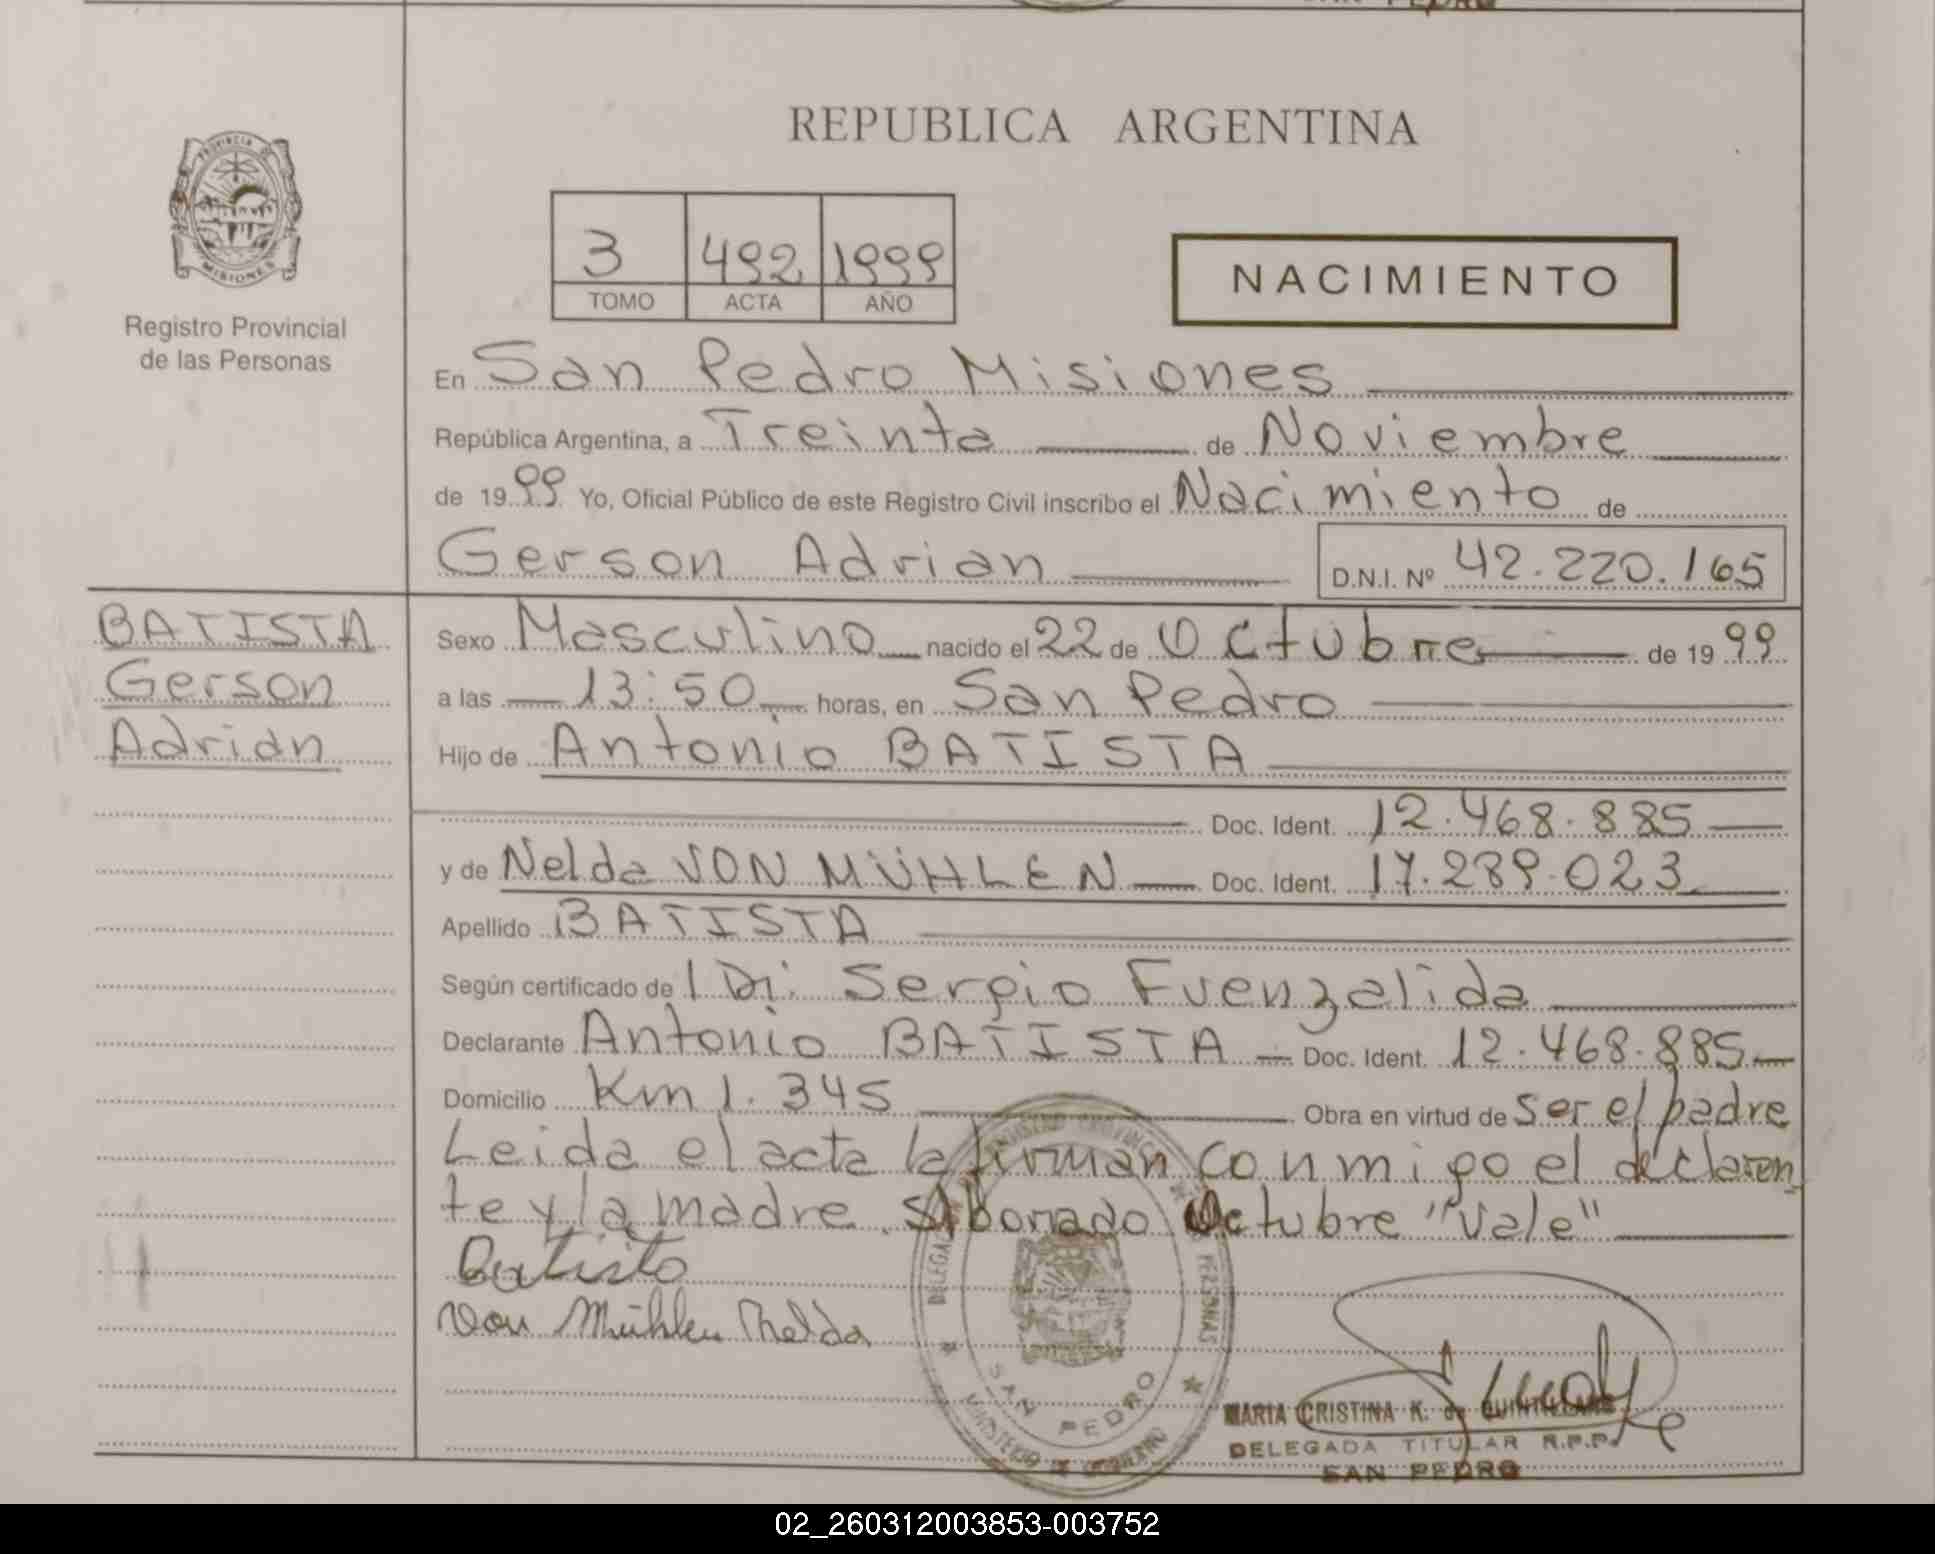 SAN PEDRO
REPUBLICA ARGENTINA
PROVINCIA
MISIONES
Registro Provincial
de las Personas
3 492 1999
TOMO ACTA AÑO
NACIMIENTO
En San Pedro Misiones
República Argentina, a Treinta de Noviembre
de 1999 Yo, Oficial Público de este Registro Civil inscribo el Nacimiento de
Gerson Adrian D.N.I. Nº 42.220.165
BATISTA
Gerson
Adrian
Sexo Masculino nacido el 22 de Octubre de 1999
a las 13:50 horas, en San Pedro
Hijo de Antonio BATISTA
Doc. Ident. 12.468.885
y de Nelda VON MÜHLEN Doc. Ident. 17.289.023
Apellido BATISTA
Según certificado de Sergio Fuenzalida
Declarante Antonio BATISTA Doc. Ident. 12.468.885
Domicilio Km 1.345 Obra en virtud de ser el padre
Leida el acta la firman conmigo el declaran
te y la madre. S/borrado Octubre "Vale"
Batista
Von Mühlen Nelda
SAN PEDRO
MINISTERIO DE GOBIERNO
MARIA CRISTINA K. de
DELEGADA TITULAR R.P.P.
SAN PEDRO
02_260312003853-003752